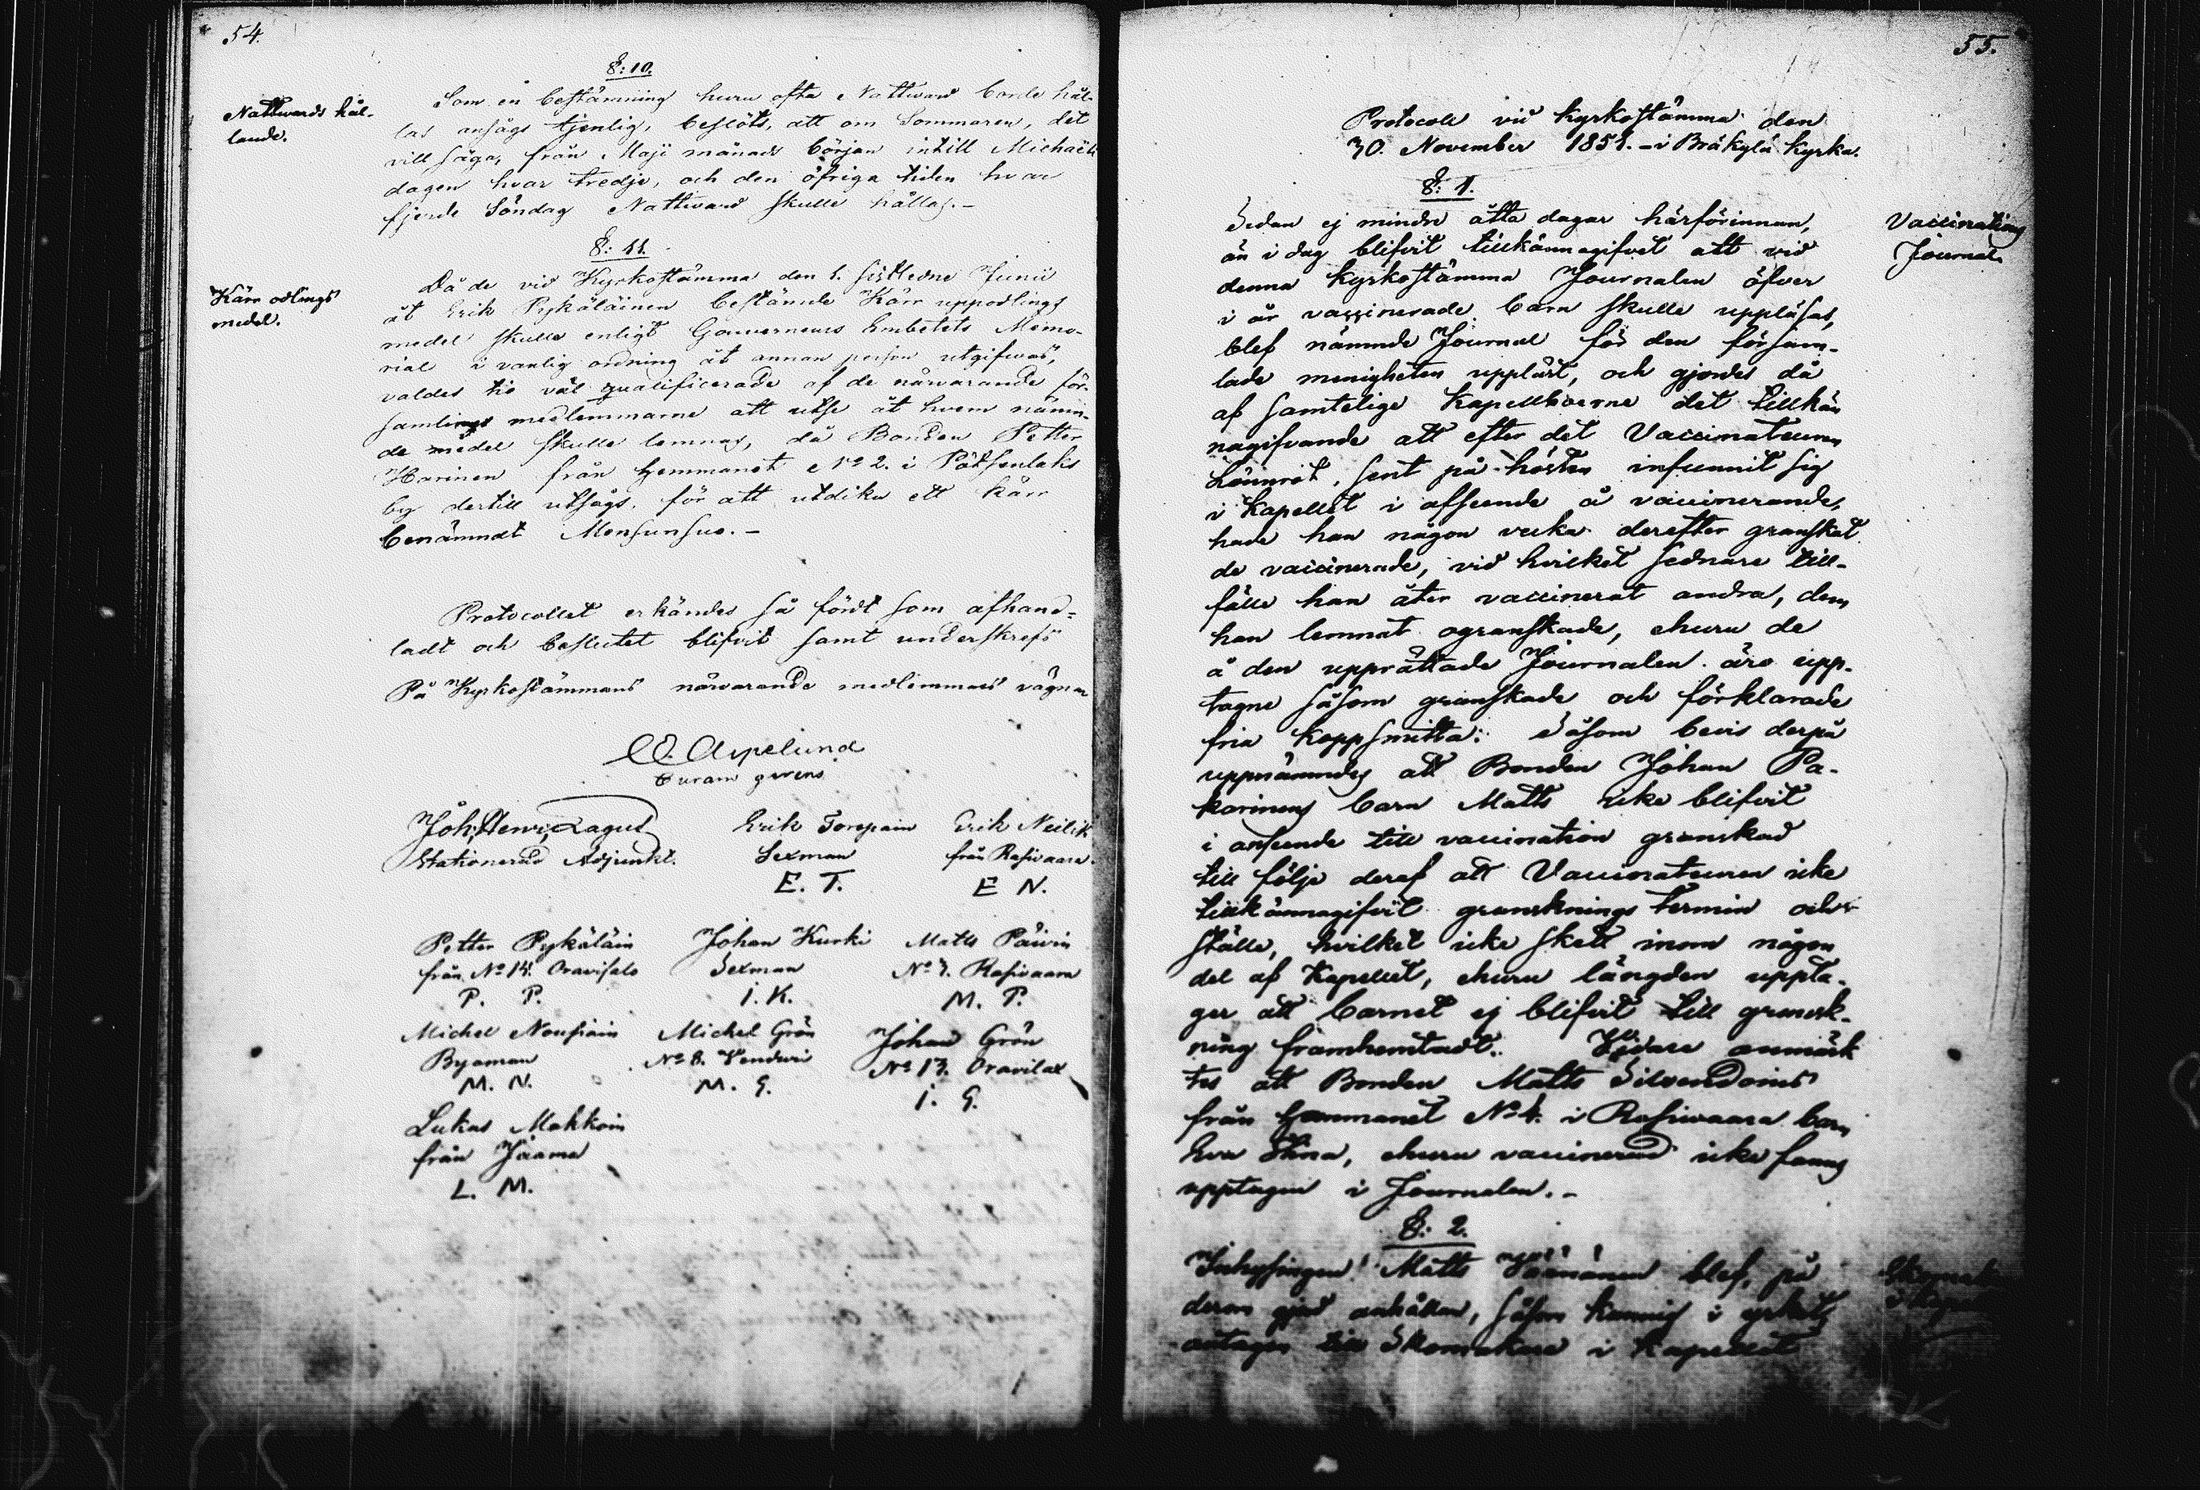 54.
§: 10.
Nattvards hål-
lande.
Som en bestämning huru ofta Nattvard borde hål-
las ansågs tjenlig, beslöts, att om Sommaren, det
vill säga, från Maji månads början intill Michaëli
dagen hvar tredje, och den öfriga tiden hvar
fjerde Söndag Nattvard skulle hållas. –
§: 11.
Kärr odlings
medel.
Då de vid Kyrkostämma den 1. sistledne Junii
åt Erik Pykäläinen bestämde Kärr uppodlings
medel skulle enligt Gouverneurs Embetets Memo-
rial i vanlig ordning åt annan person utgifwas,
valdes tio väl qualificerade af de närvarande för-
samlings medlemmarne att utse åt hvem nämn-
de medel skulle lemnas, då Bonden Petter
Harinen från hemmanet No 2. i Pötsenlaks
by dertill utsågs, för att utdika ett kärr
benämndt Monsunsuo. –
Protocollet erkändes så fördt som afhand-
ladt och beslutet blifvit samt underskrefs
På Kyrkostämmans närvarande medlemmars vägnar
Aspelund
Curam gerens
Joh: Henr: Lagus
Stationerad Adjunkt.
Erik Torspain
Sexman
E. T.
Erik
från Rasivaara.
E N.
Petter Pykäläin
från No 14. Oravisalo
P. P.
Johan Kurki
Sexman
I. K.
Matts Päivin
No 7. Rasivaara
M. P.
Michel Nousiain
Byaman
M. N.
Michel Grön
No 8.
M. G.
Johan Grön
No 13. Oravilax
I. G.
Lukas Makkoin
från Jaama
L. M.
55.
Protocoll vid Kyrkostämma den
30. November 1851. – i Bräkylä Kyrka.
§: 1.
Vaccinations
Journal
Sedan ej mindre åtta dagar härförinnan,
än i dag blifvit tillkännagifvet att vid
denna Kyrkostämma Journalen öfver
i år vaccinerade barn skulle uppläsas,
blef nämnde Journal för den försam-
lade menigheten uppläst, och gjordes då
af samtelige Kapellboerne det tillkän
nagifvande att efter det Vaccinateuren
Lönnrot, sent på hösten infunnit sig
i Kapellet i afseende å vaccinerande,
hade han någon vecka derefter granskat
de vaccinerade, vid hvilket sednare till-
fälle han åter vaccinerat andra, dem
han lemnat ogranskade, ehuru de
å den upprättade Journalen äro upp-
tagne såsom granskade och förklarade
fria koppsmitta: Såsom bevis derpå
uppnämndes att Bonden Johan Pa-
karinens barn Matts icke blifvit
i anseende till vaccination granskad
till följe deraf att Vaccinateuren icke
tillkännagifvit gransknings termin och
ställe, hvilket icke skett inom någon
del af Kapellet, ehuru längden uppta-
ger att barnet ej blifvit till gransk-
ning framhemtadt. Vidare anmärk
tes att Bonden Matts Silvendoins
från hemmanet No 4. i Rasivaara barn
Eva Stina, ehuru vaccinerad icke fanns
upptagen i Journalen. –
§: 2.
Inhysingen Matts Väänänen blef, på
derom gjord anhållan, såsom kunnig i yrket
antagen till Skomakare i Kapellet